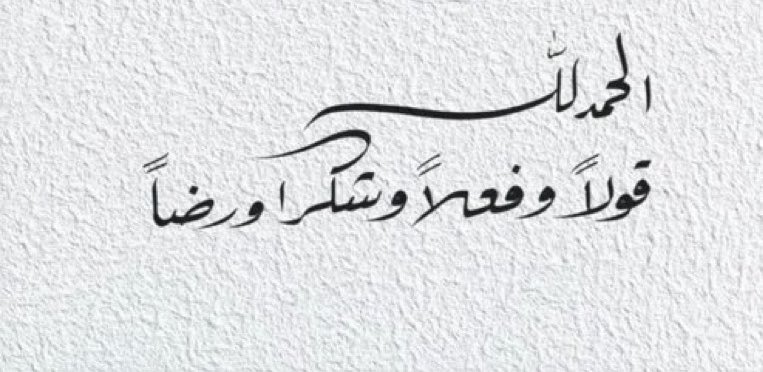 الحمدلله
قولاً وفعلاً وشكرا ورضاً